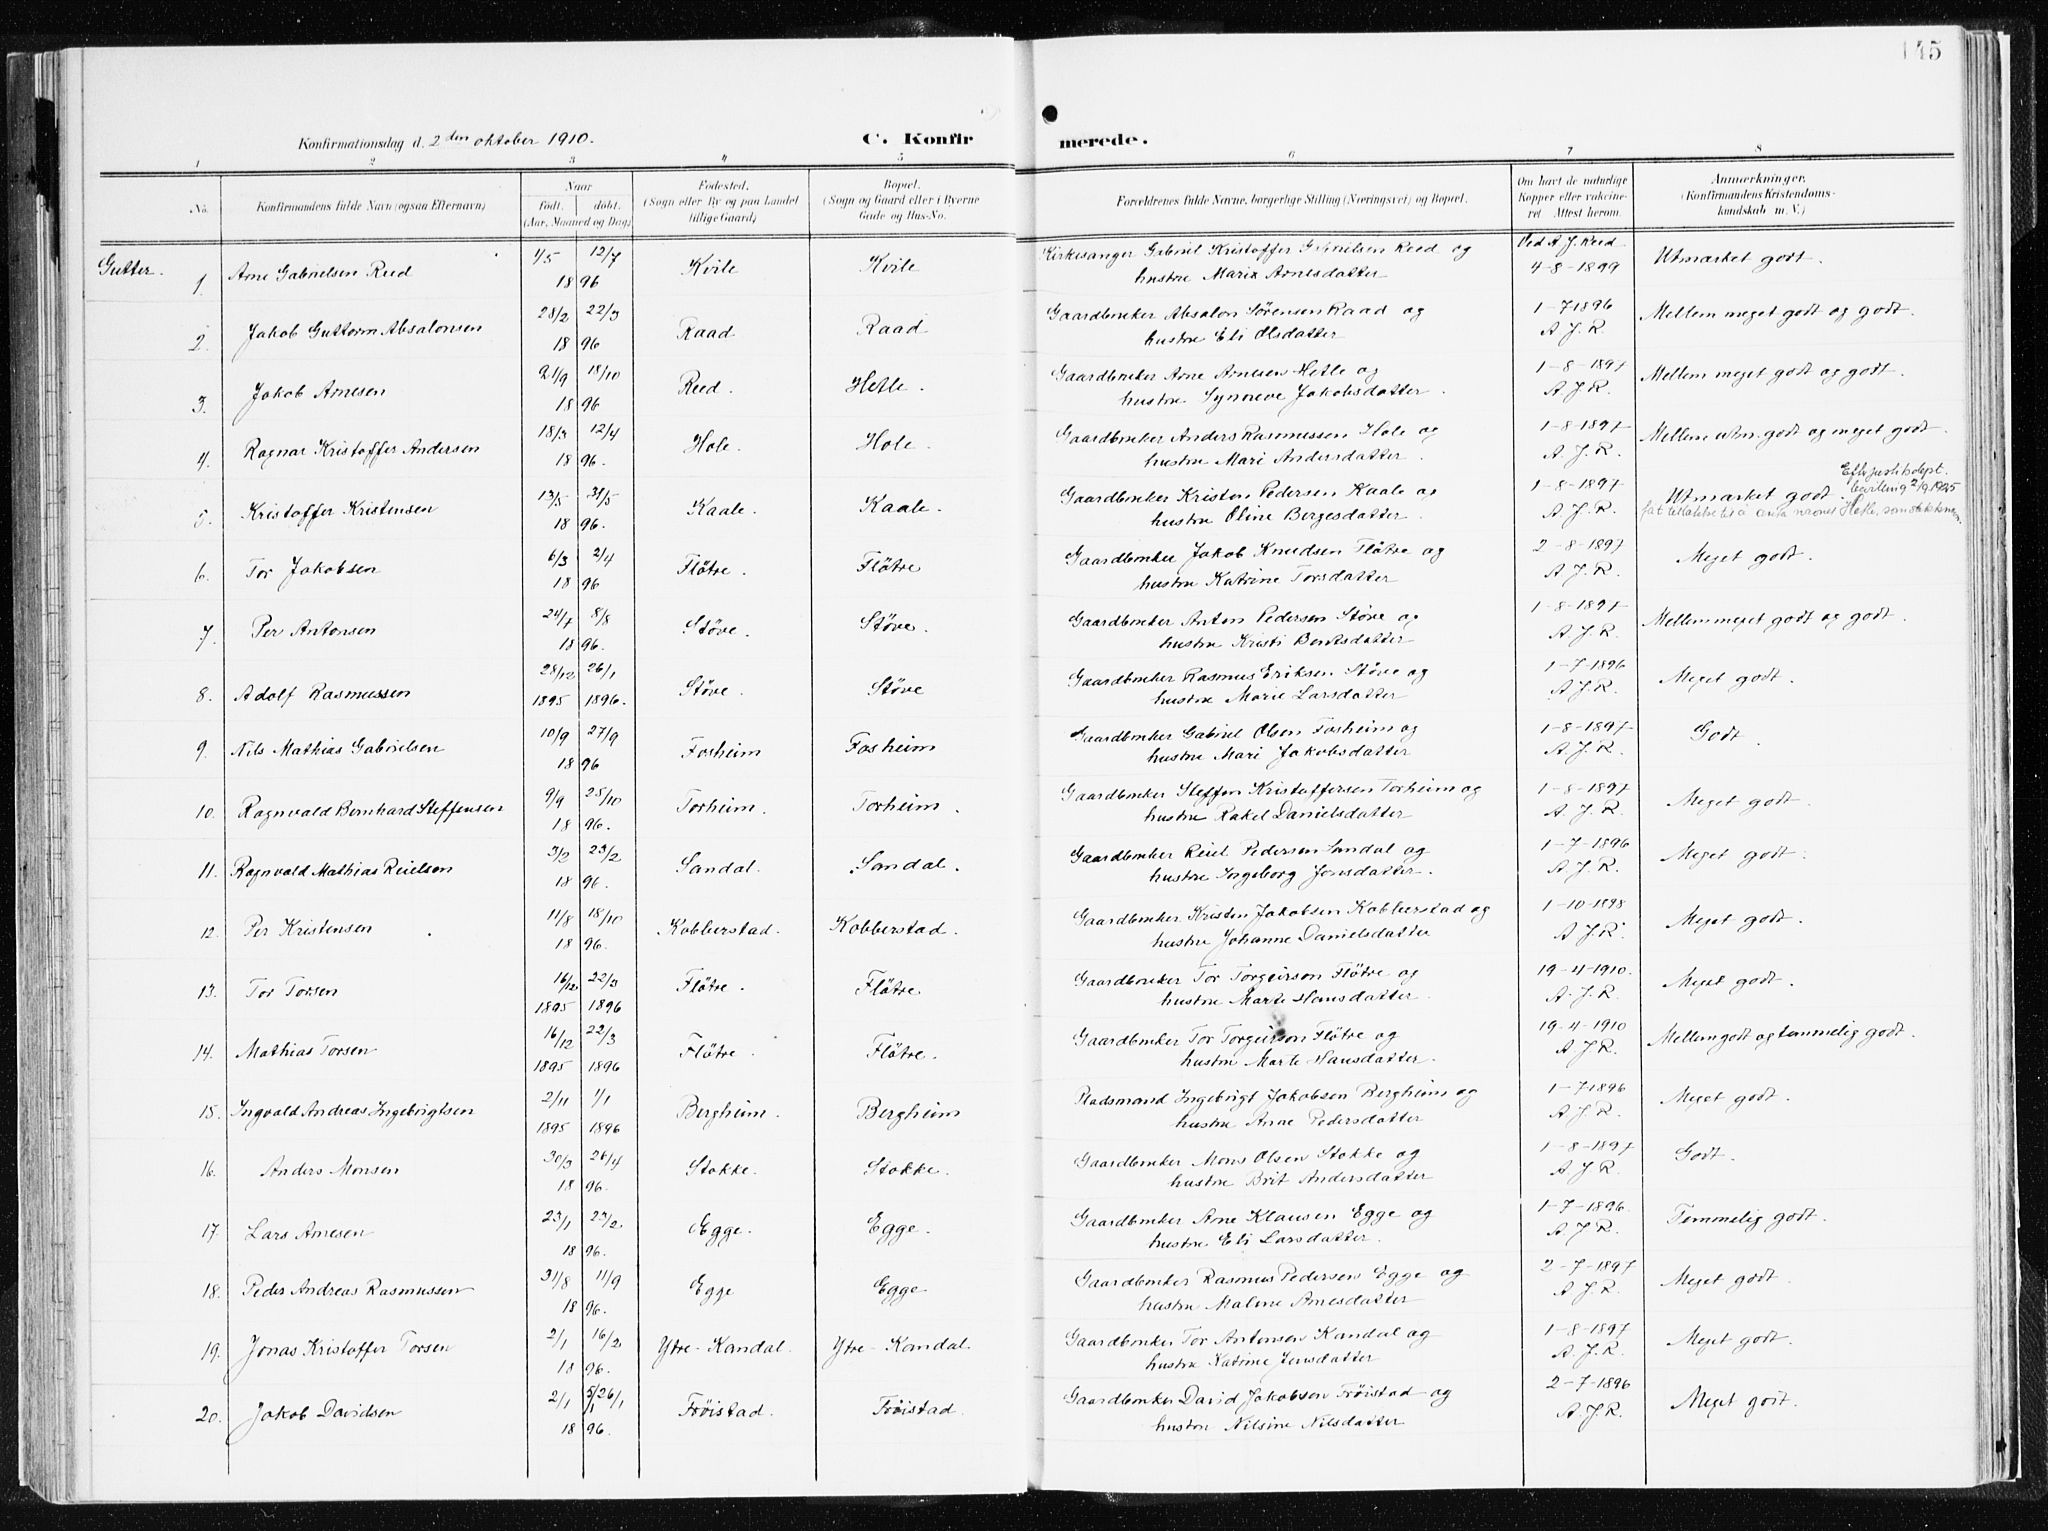 145
Konfirmationsdag d. 2den oktober 1910. C. Konfirmerede.
1 2 3 4 5 6 7 8
No. Konfirmandens fulde Navn (ogsaa Efternavn) Naar født. døbt. (Aar, Maaned og Dag) Fødested. (Sogn eller By og paa Landet tillige Gaard) Bopæl. (Sogn og Gaard eller i Byerne Gade og Hus-No. Forældrenes fulde Navne, borgerlige Stilling (Næringsvei) og Bopæl. Om havt de naturlige Kopper eller vakcineret. Attest herom. Anmærkninger. (Konfirmandens Kristendomskundskab m. V.)
Gutter.
1. Arne Gabrielsen Reed 1/5 12/7 1896 Kvile Kvile Kirkesanger Gabriel Kristoffer Gabrielsen Reed og hustru Maria Arnesdatter Ved A J. Reed 4-8-1899 Utmærket godt.
2. Jakob Guttorm Absalonsen 28/2 22/3 1896 Raad Raad Gaardbruker Absalon Sørensen Raad og hustru Eli Olsdatter 1-7-1896 A. J. R. Mellem meget godt og godt.
3. Jakob Arnesen 21/9 18/10 1896 Reed. Hetle. Gaardbruker Arne Arnesen Hetle og hustru Synneve Jakobsdatter. 1-8-1897 A. J. R. Mellem meget godt og godt.
4. Ragnar Kristoffer Andersen 18/3 12/4 1896. Hole. Hole. Gaardbruker Anders Rasmussen Hole og hustru Mari Andersdatter. 1-8-1897 A. J. R. Mellem utm. godt og meget godt.
5. Kristoffer Kristensen 13/5 31/5 1896. Kaale. Kaale. Gaardbruker Kristen Pedersen Kaale og hustru Oline Bergesdatter. 1-8-1897 A. J. R. Utmærket godt. Eftr justitsdept. bevilling 2/9 1925 fåt tillatelse til å anta navnet Hetle, som slektsnavn.
6. Tor Jakobsen 6/3 2/4 1896 Flötre. Flötre Gaardbruker Jakob Knudsen Flötre og hustru Katrine Torsdatter 2-8-1897 A. J. R. Meget godt.
7. Per Antonsen 24/7 8/8 1896. Støve. Støve. Gaardbruker Anton Pedersen Støve og hustru Kristi Bentsdatter 1-8-1897 A. J. R. Mellem meget godt og godt.
8. Adolf Rasmussen 28/12 1895 26/1 1896. Støve. Støve Gaardbruker Rasmus Eriksen Støve og hustru Marie Larsdatter 1-7-1896 A. J. R. Meget godt.
9. Nils Mathias Gabrielsen 10/9 27/9 1896 Fosheim Fosheim Gaardbruker Gabriel Olsen Fosheim og hustru Mari Jakobsdatter 1-8-1897 A. J. R. Godt.
10. Ragnvald Bernhard Steffensen 9/9 25/10 1896. Torheim. Torheim. Gaardbruker Steffen Kristoffersen Torheim og hustru Rakel Danielsdatter 1-8-1897 A. J. R. Meget godt.
11. Ragnvald Mathias Reielsen 3/2 23/2 1896. Sandal. Sandal. Gaardbruker Reiel Pedersen Sandal og hustru Ingeborg Jonsdatter. 1-7-1896 A. J. R. Meget godt.
12. Per Kristensen 11/8 18/10 1896. Kobberstad. Kobberstad. Gaardbruker Kristen Jakobsen Kobberstad og hustru Johanne Danielsdatter 1-10-1898 A. J. R. Meget godt.
13. Tor Torsen 16/12 1895 22/3 1896 Flötre. Flötre. Gaardbruker Tor Torgeirson Flötre og hustru Marte Hansdatter. 19-4-1910. A. J. R. Meget godt.
14. Mathias Torsen 16/12 1895 22/3 1896 Flötre. Flötre. Gaardbruker Tor Torgeirson Flötre og hustru Marte Hansdatter. 19-4-1910 A J R. Mellem godt og temmelig godt.
15. Ingvald Andreas Ingebrigtsen 2/11 1895 1/1 1896 Bergheim. Bergheim Pladsmand Ingebrigt Jakobsen Bergheim og hustru Anne Pedersdatter 1-7-1896 A. J. R. Meget godt.
16. Anders Monsen 30/3 26/4 1896. Stokke. Stokke. Gaardbruker Mons Olsen Stokke og hustru Brit Andersdatter 1-8-1897 A. J. R. Godt.
17. Lars Arnesen 23/1 23/2 1896. Egge. Egge. Gaardbruker Arne Klausen Egge og hustru Eli Larsdatter. 1-7-1896. A. J. R. Temmelig godt.
18. Peder Andreas Rasmussen 31/8 11/9 1896. Egge Egge Gaardbruker Rasmus Pedersen Egge og hustru Malene Arnesdatter 2-7-1897 A. J. R. Meget godt.
19. Jonas Kristoffer Torsen 2/1 16/2 1896. Ytre-Kandal. Ytre-Kandal. Gaardbruker Tor Antonsen Kandal og hustru Katrine Jensdatter 1-8-1897 A. J. R. Meget godt.
20. Jakob Davidsen 2/1 5/1 26/1 1896. Fröistad. Fröistad. Gaardbruker David Jakobsen Fröistad og hustru Nilsine Nilsdatter 2-7-1896 A. J. R. Meget godt.